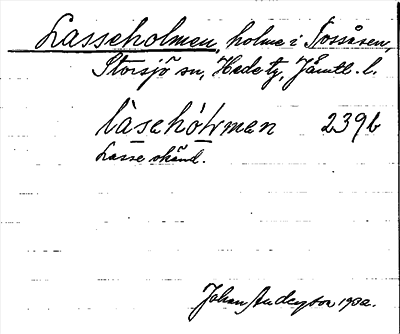 Lasseholmen, holme i Tossåsen,
Storsjö sn, Hede tg, Jämtl. l.
làsehól̵men 239b
Lasse okänd.
Johan Anderson 1902.